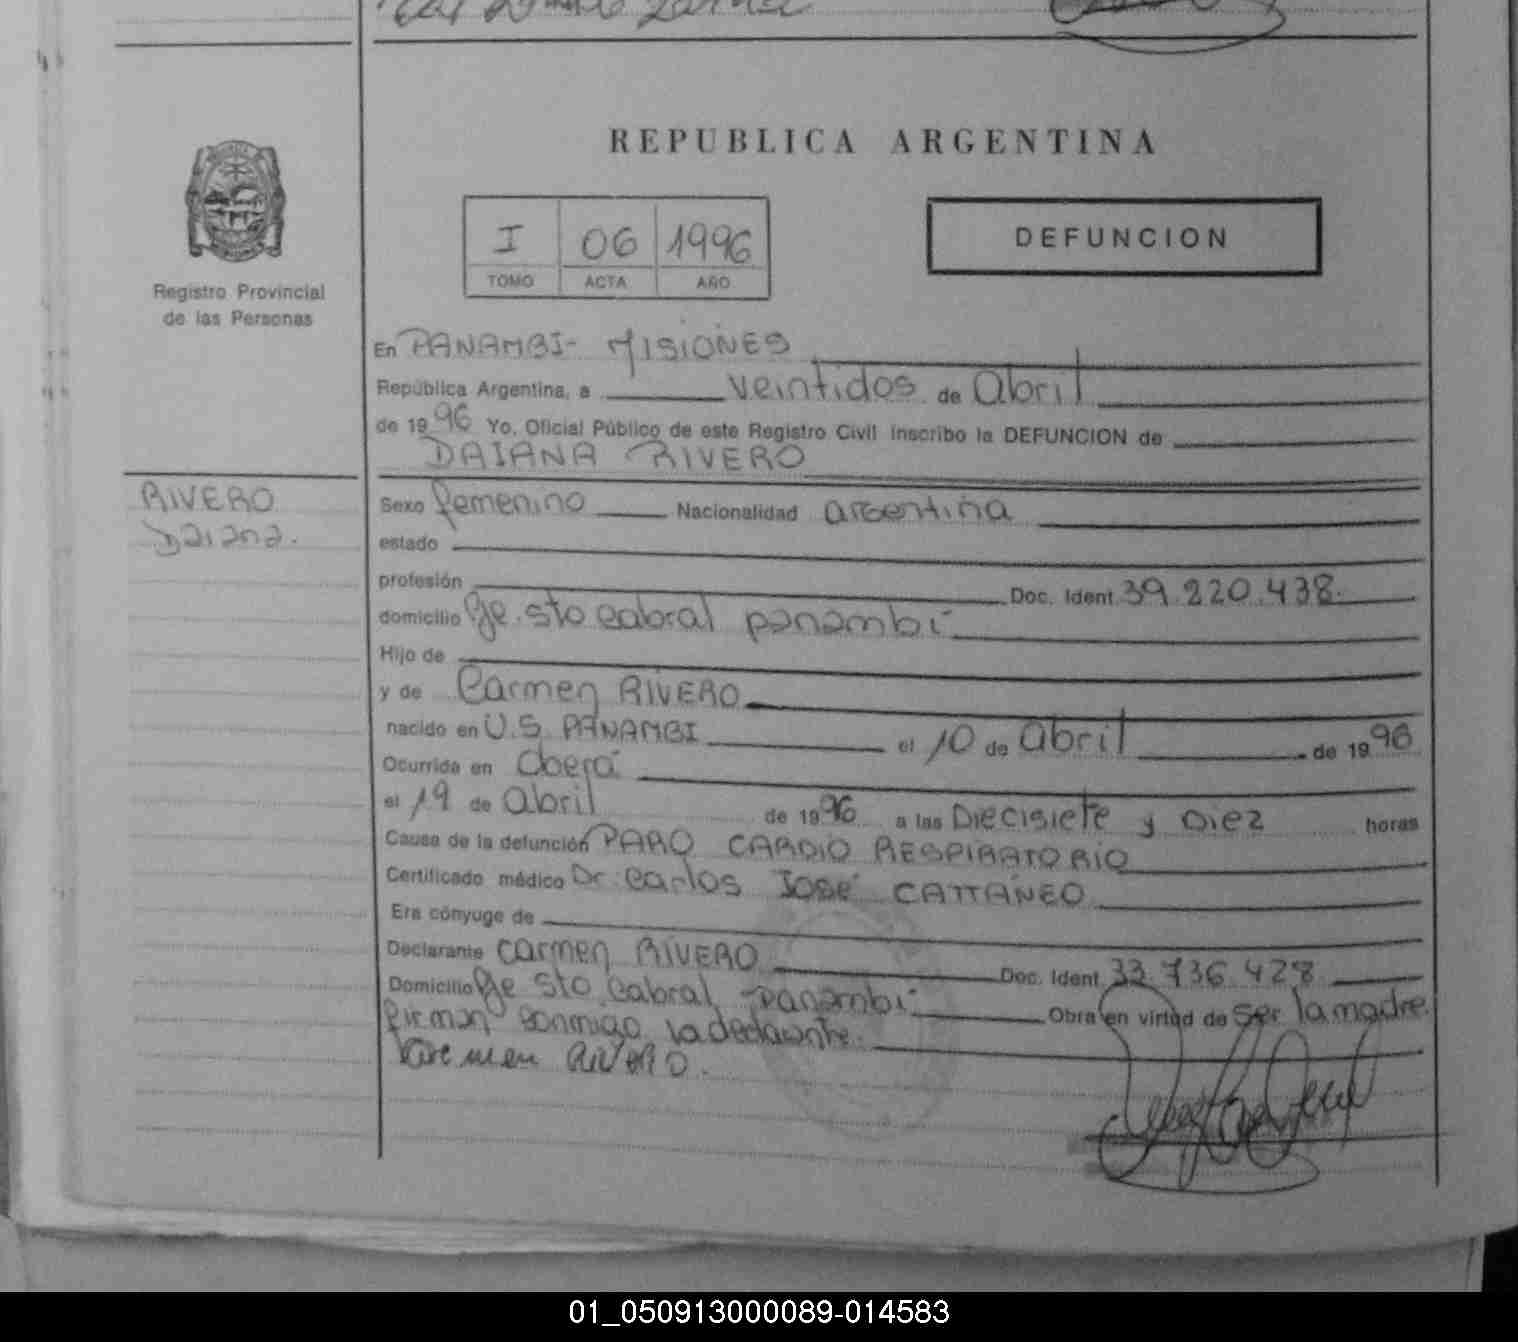 REPUBLICA ARGENTINA
I 06 1996
TOMO ACTA AÑO
DEFUNCION
Registro Provincial
de las Personas
En PANAMBI - MISIONES
República Argentina, a veintidos de abril
de 1996 Yo, Oficial Público de este Registro Civil inscribo la DEFUNCION de
DAIANA RIVERO
RIVERO
Daiana.
Sexo femenino Nacionalidad argentina
estado
profesión Doc. Ident. 39.220.438
domicilio Pje. Sto Cabral panambi
Hijo de
y de Carmen RIVERO
nacido en U.S. PANAMBI el 10 de abril de 1996
Ocurrida en Oberá
el 19 de abril de 1996 a las Diecisiete y Diez horas
Causa de la defunción PARO CARDIO RESPIRATORIO
Certificado médico Dr. Carlos José CATTANEO
Era cónyuge de
Declarante Carmen RIVERO Doc. Ident. 33.736.428
Domicilio Pje Sto Cabral panambi Obra en virtud de ser la madre.
firman conmigo la declarante.
Carmen RIVERO.
01_050913000089-014583